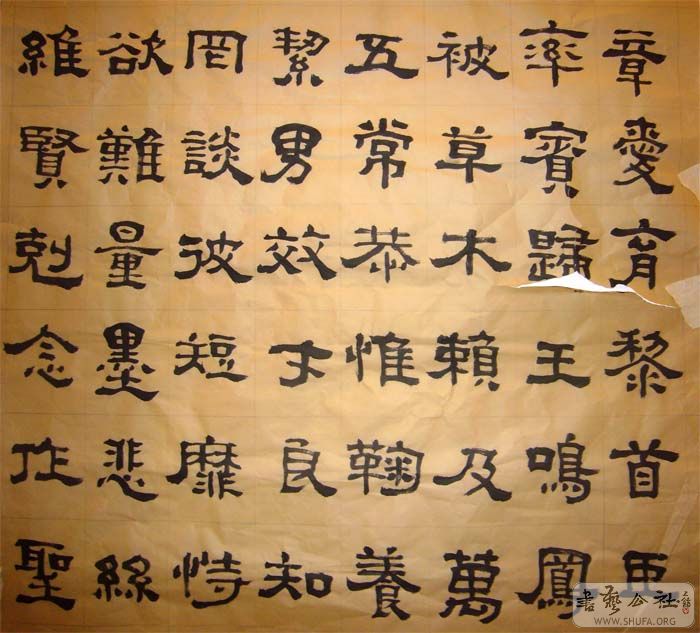 章愛育黎首臣
率賓歸王鳴鳳
被草木賴及萬
五常恭惟鞠養
絜男效才良知
罔談彼短靡恃
欲難量墨悲絲
維賢剋念作聖
書藝公社
WWW.SHUFA.ORG